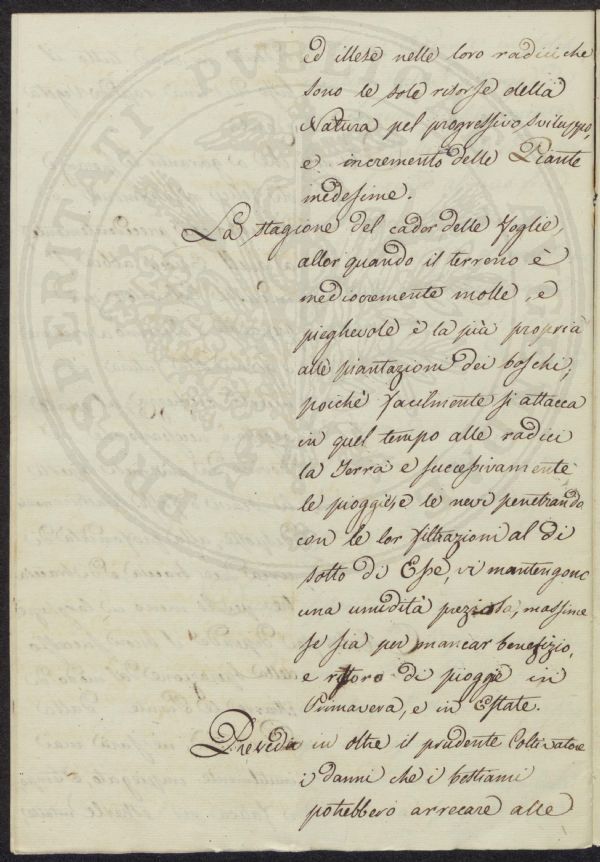 ed illese nelle loro radici che
sono le sole risorse della
Natura pel progressivo sviluppo,
e incremento delle Piante
medesime.
La stagione del cader delle Foglie,
allor quando il terreno è
mediocremente molle, e
pieghevole è la più propria
alle piantazioni dei boschi;
poichè facilmente si attacca
in quel tempo alle radici
la Terra e successivamente
le pioggie, e le nevi penetrando
con le lor filtrazioni al di
sotto di Esse, vi mantengono
una umidità preziosa, massime
se sia per mancar benefizio,
e ristoro di pioggie in
Primavera, e in Estate.
Prevede in oltre il prudente Coltivatore
i danni che i bestiami
potrebbero arrecare alle
PROSPERITATI PUBLICAE